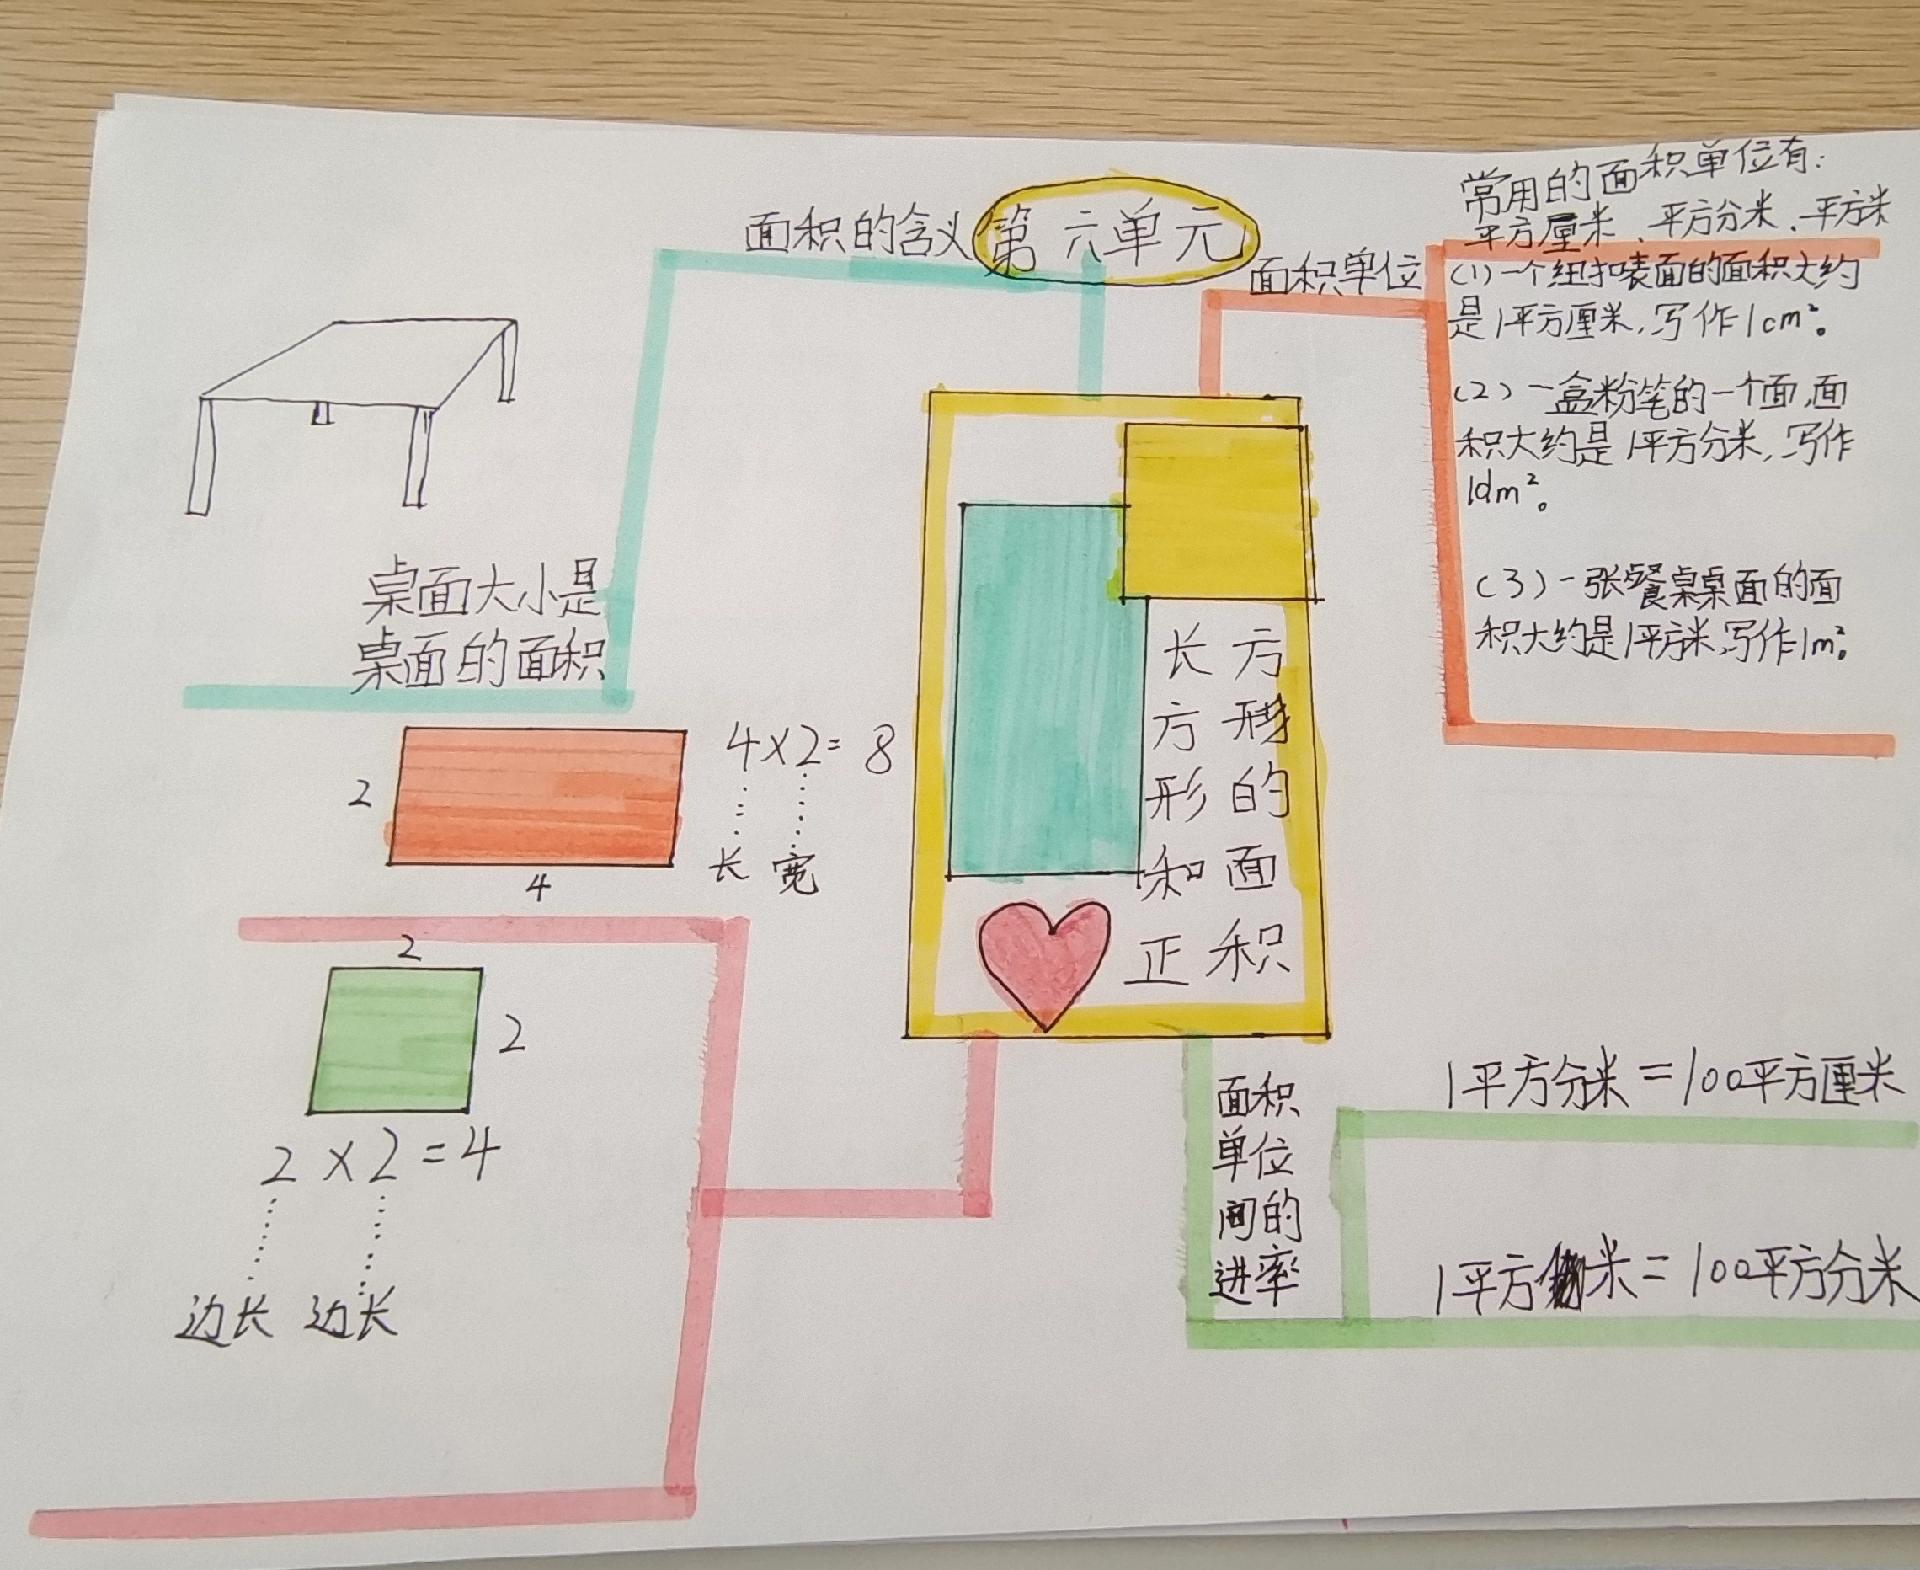 第六单元
面积的含义
桌面大小是
桌面的面积
面积单位
常用的面积单位有:
平方厘米、平方分米、平方米
(1)一个纽扣表面的面积大约
是1平方厘米,写作1cm²。
(2)一盒粉笔的一个面,面
积大约是1平方分米,写作
1dm²。
(3)一张餐桌桌面的面
积大约是1平方米,写作1m²。
长方形和正
方形的面积
2
4
4×2=8
长 宽
2
2
2×2=4
边长 边长
面积
单位
间的
进率
1平方分米=100平方厘米
1平方米=100平方分米